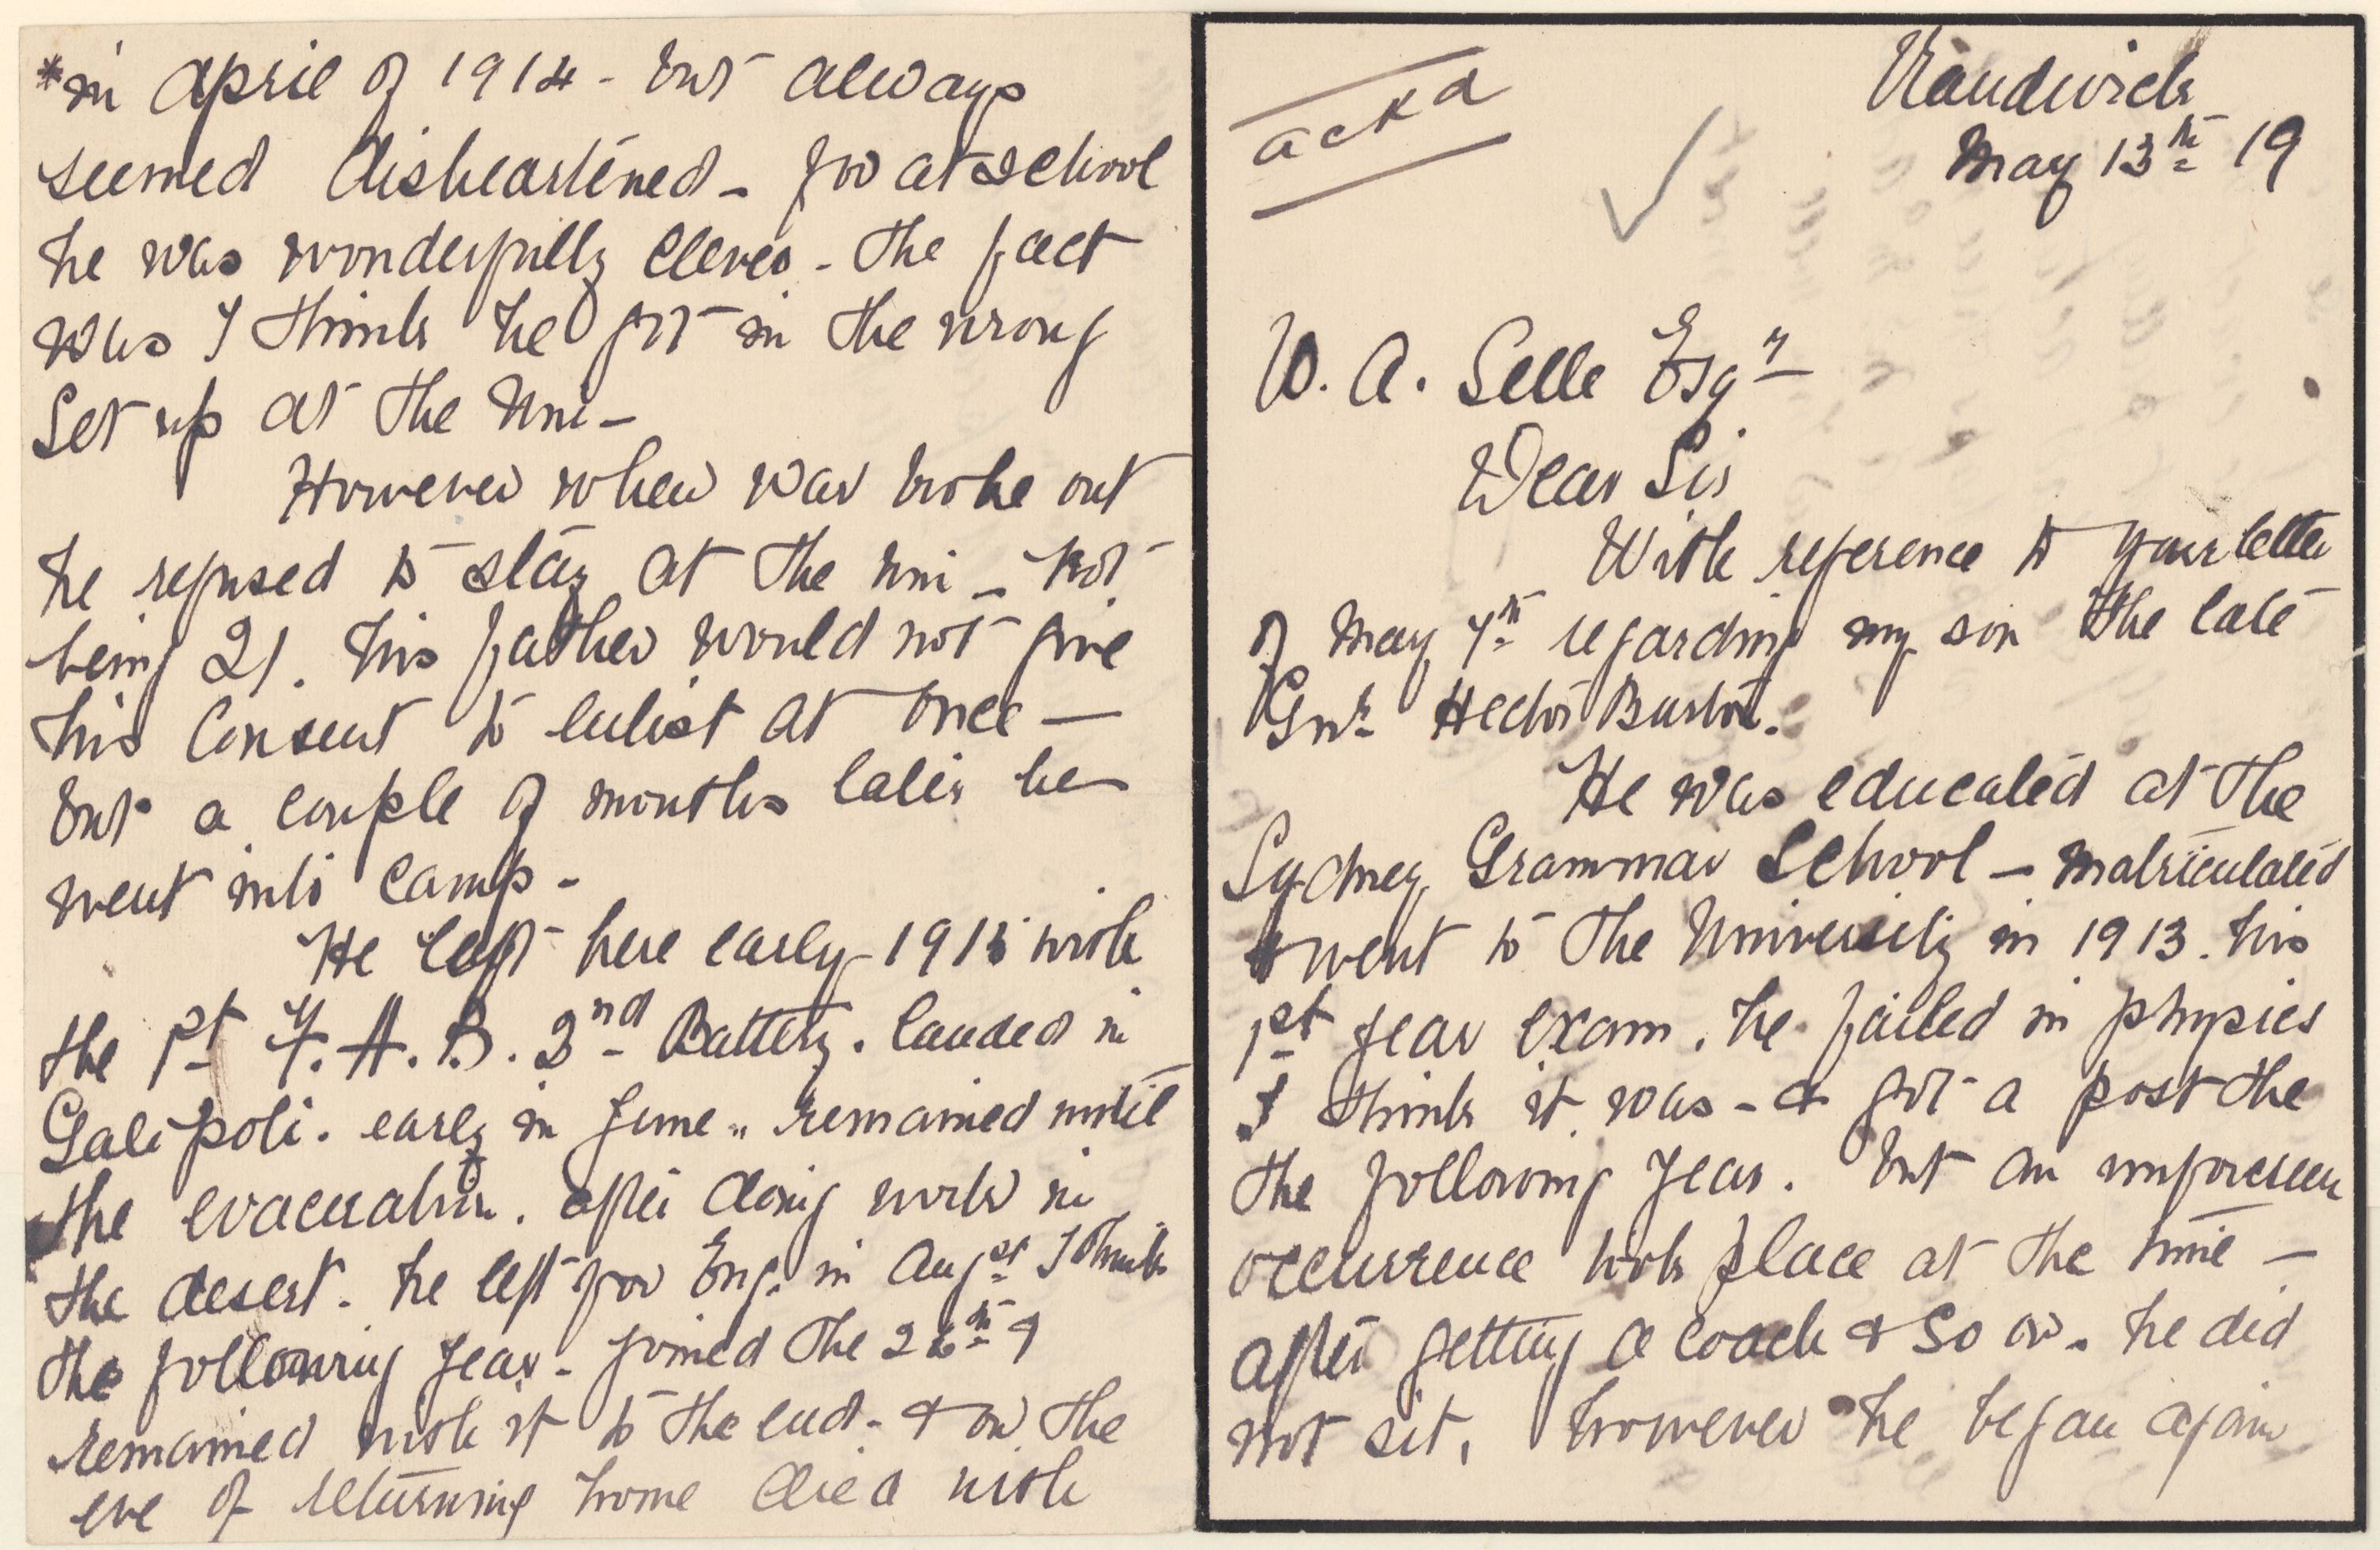 ackd
Randwick
May 13th 19
W. A. Selle Esqr
Dear Sir
With reference to your letter
of May 7th regarding my son the late
Gnr Hector Burton.
He was educated at the
Sydney Grammar School – Matriculated
& went to the University in 1913. his
1st year exam. he failed in physics
I think it was – & got a post the
the following year. but an unforeseen
occurrence took place at the time –
after getting a coach & so on. he did
not sit, however he began again
*in April of 1914 – but always
seemed disheartened – for at school
he was wonderfully clever – the fact
was I think he got in the wrong
set up at the Uni –
However when war broke out
he refused to stay at the Uni – not
being 21. his father would not give
his consent to enlist at once –
but a couple of months later he
went into camp –
He left here early 1915 with
the 1st F. A. B. 2nd Battery. landed in
Galipoli. early in June .. remained until
the evacuation. after doing work in
the desert. he left for Eng. in Augst I think
the following year – joined the 26th &
remained with it to the end – & on the
eve of returning home died with